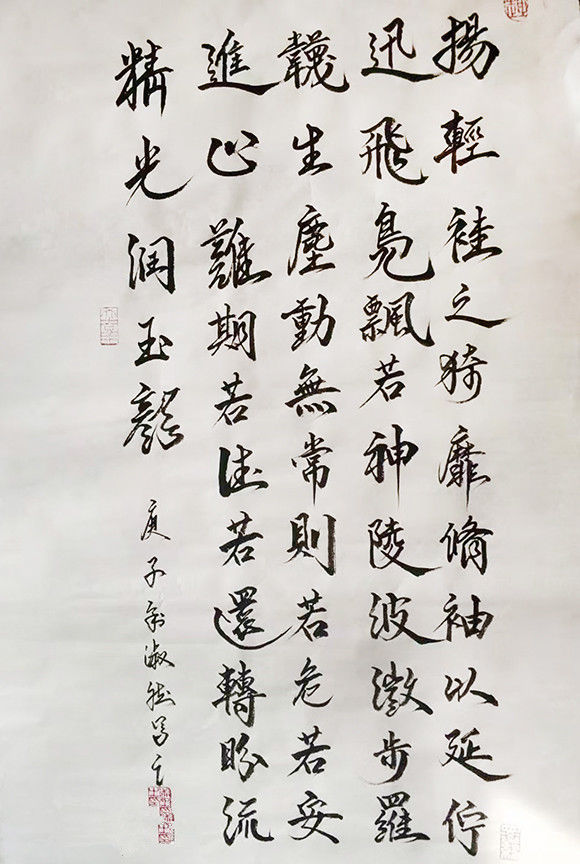 揚輕袿之猗靡脩袖以延佇
迅飛鳧飄若神陵波微步羅
韈生塵動無常則若危若安
進止難期若往若還轉眄流
精光润玉顏
庚子淑然书之